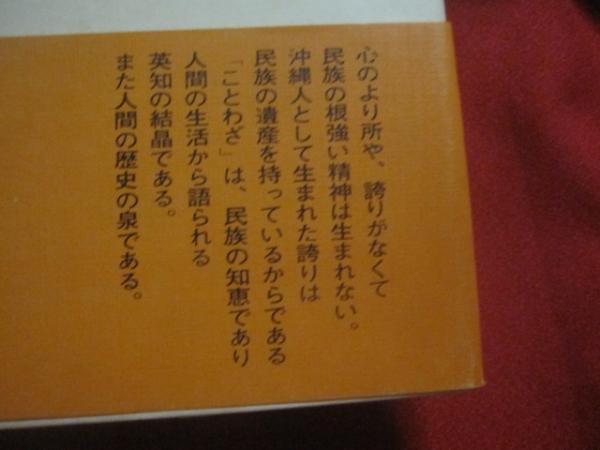 心のより所や、誇りがなくて
民族の根強い精神は生まれない。
沖縄人として生まれた誇りは
民族の遺産を持っているからである
「ことわざ」は、民族の知恵であり
人間の生活から語られる
英知の結晶である。
また人間の歴史の泉である。